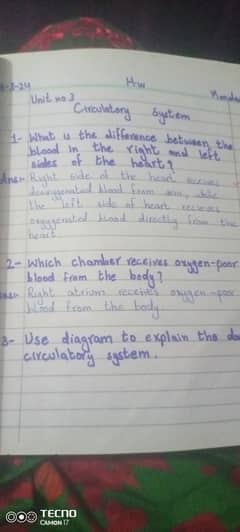 -3-24 H.W Monday
Unit no 3
Circulatory System
1- What is the difference between the
blood in the right and left
sides of the heart?
Ans:- Right side of the heart receives
deoxygenated blood from while
the left side of heart recieves
oxygenated blood directly from the
heart
2- Which chamber receives oxygen-poor
blood from the body?
Ans:- Right atrium receives oxygen-poor
blood from the body
3- Use diagram to explain the
circulatory system.
TECNO
CAMON 17